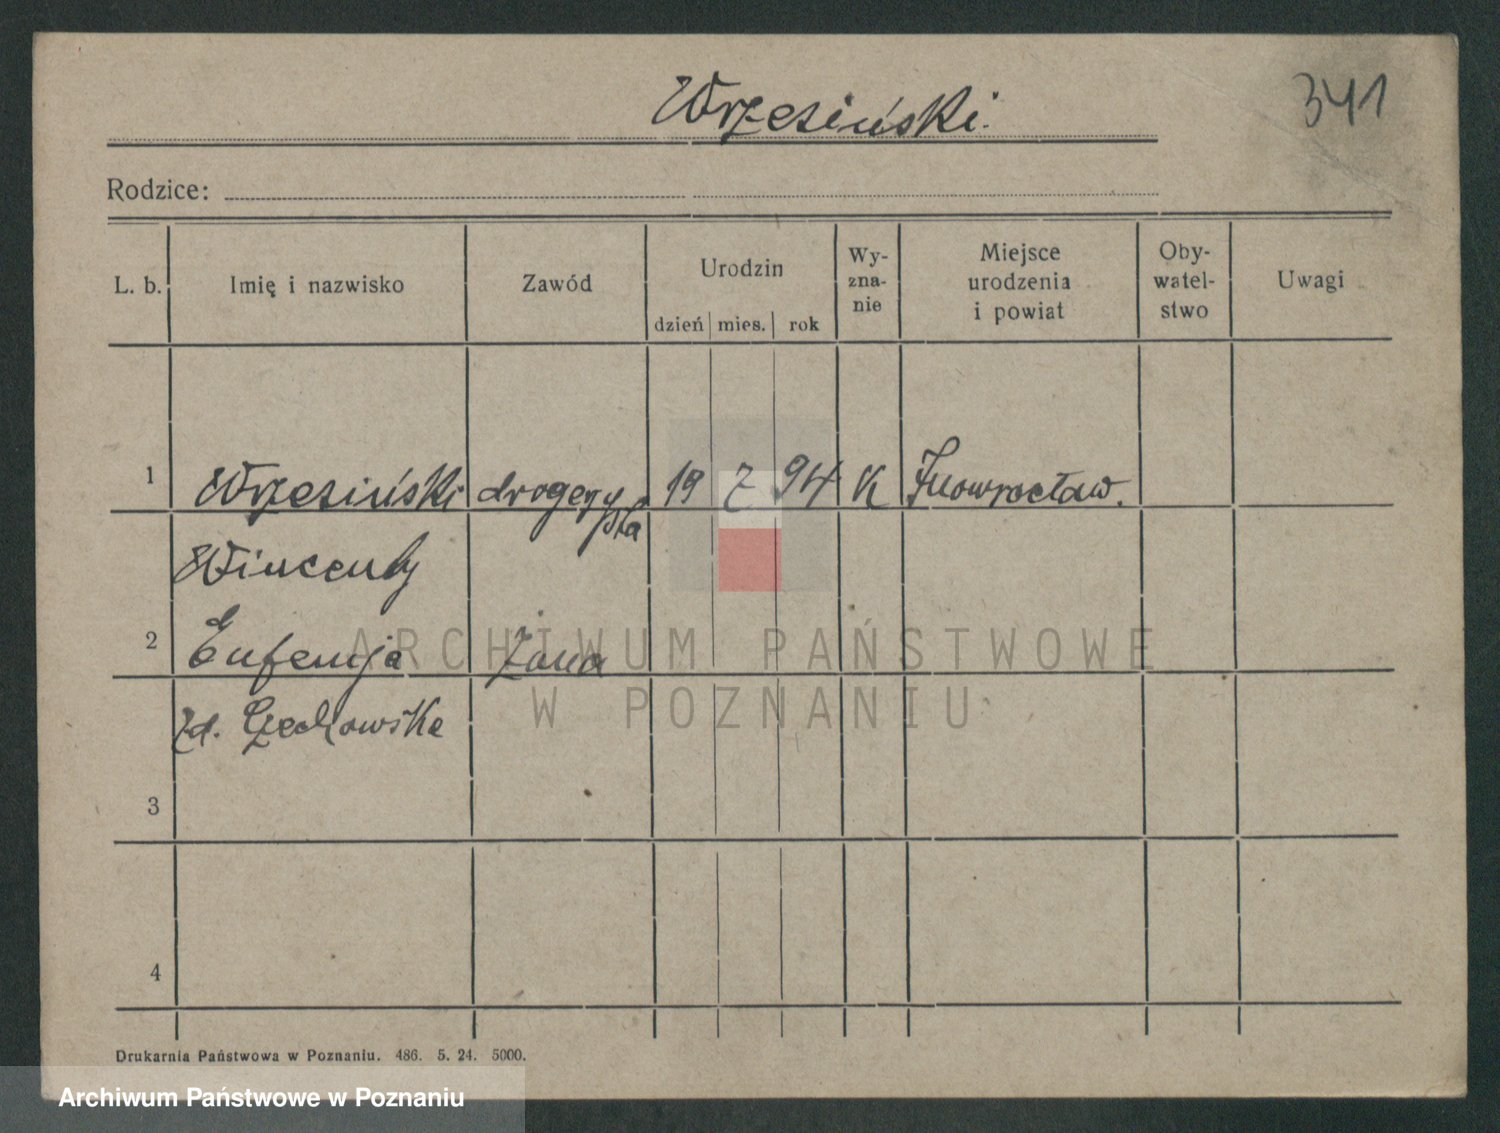 341
Wrzesiński.
Rodzice:
L. b. Imię i nazwisko Zawód Urodzin dzień mies. rok Wy-zna-nie Miejsce urodzenia i powiat Oby-watel-stwo Uwagi
1 Wrzesiński drogerzy 19 7 94 K Inowrocław.
sta
Wincenty
2 Eufemja żona
zd. Czechowska
3
4
Drukarnia Państwowa w Poznaniu. 486. 5. 24. 5000.
ARCHIWUM PAŃSTWOWE
W POZNANIU
Archiwum Państwowe w Poznaniu